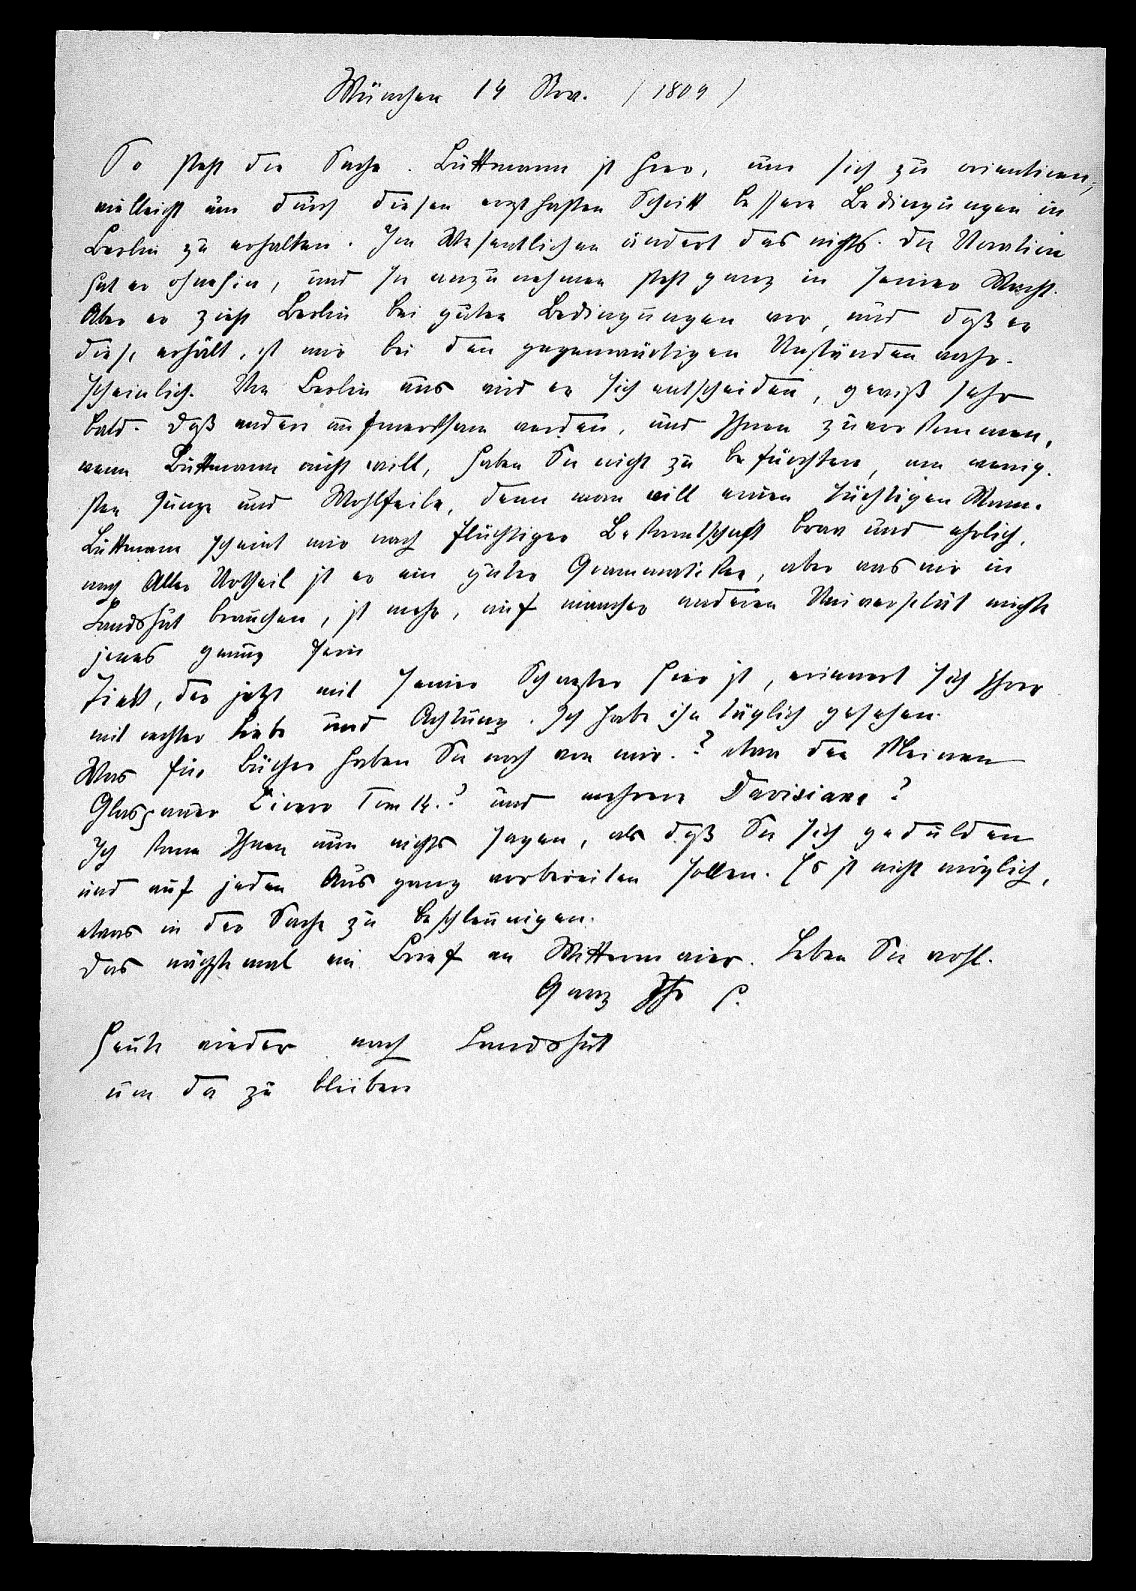 München 14 Nov. (1809)
So steht die Sache. Buttmann ist hier, um sich zu orientiren,
vielleicht um durch diesen ernsthaften Schritt bessere Bedingungen in
Berlin zu erhalten. Im Wesentlichen ändert das nichts. die Vocation
hat er ohnehin, und sie anzunehmen steht ganz in seiner Macht.
Aber er zieht Berlin bei guten Bedingungen vor, und daß er
diese erhält, ist mir bei den gegenwärtigen Umständen wahr-
scheinlich. Von Berlin aus wird er sich entscheiden, gewiß sehr
bald. Daß andere aufmerksam werden, und Ihnen zuvor kommen,
wenn Buttmann nicht will, haben Sie nicht zu befürchten, am wenig-
sten Junge und Wohlfeile, denn man will einen tüchtigen Mann.
Buttmann scheint mir nach flüchtiger Bekantschaft brav und ehrlich,
nach Aller Urtheil ist er ein guter Grammatiker, aber was wir in
Landshut brauchen, ist mehr, auf mancher anderen Universität möchte
jenes genug sein
Tiek, der jetzt mit seiner Schwester hier ist, erinnert sich Ihrer
mit rechter Liebe und Achtung. Ich habe ihn täglich gesehen.
Was für Bücher haben Sie noch von mir.? etwa den kleinen
Glasgauer Cicero Tom 14.? und mehrere Davisiana?
Ich kann Ihnen nun nichts sagen, als daß Sie sich gedulden
und auf jeden Ausgang vorbereiten sollen. Es ist nicht möglich,
etwas in der Sache zu beschleunigen.
Das nächste mal ein Brief an Mittermaier. Leben Sie wohl.
Ganz Ihr S.
Heute wieder nach Landshut
um da zu bleiben